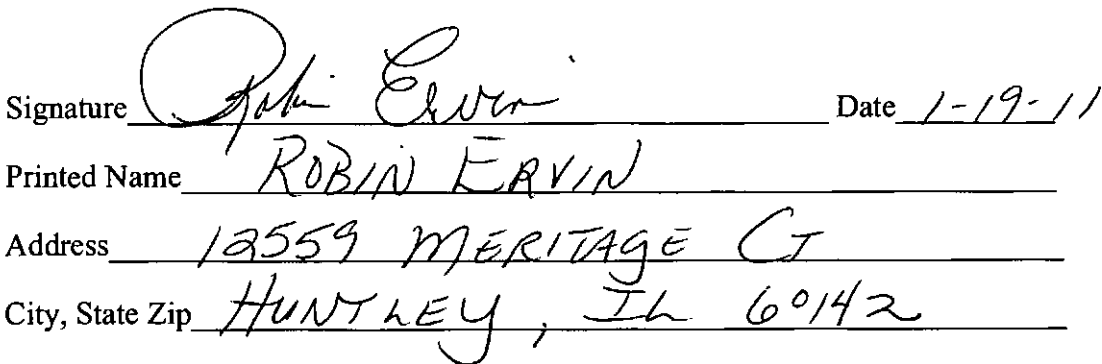 Signature Robin Ervin Date 1-19-11
Printed Name ROBIN ERVIN
Address 12559 MERITAGE CT
City, State Zip HUNTLEY, IL 60142